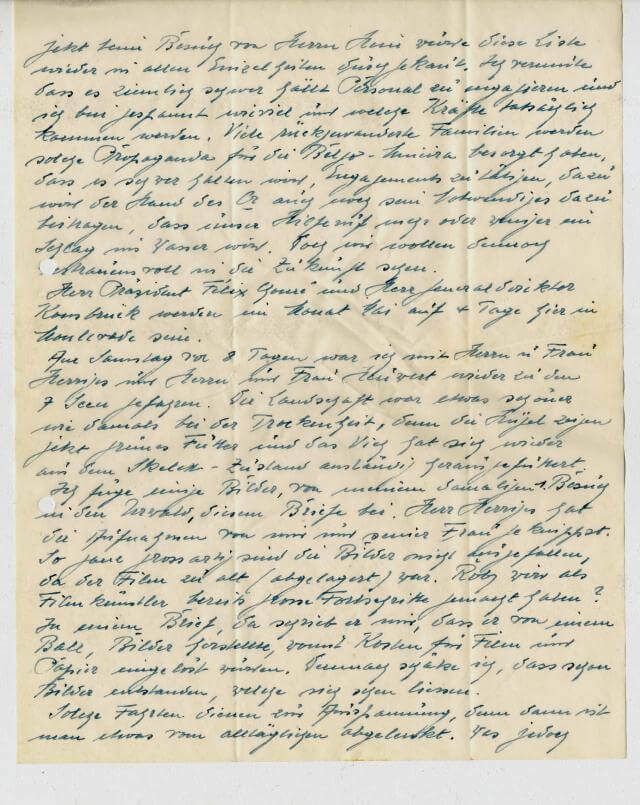 jetzt beim Besuch von Herrn Hein würde diese Liste
wieder in allen Einzelheiten durchgekaut. Ich vermute
dass es ziemlich schwer hällt Personal zu engagieren und
ich bin gespannt wieviel und welche Kräfte tatsächlich
kommen werden. Viele rückgewanderte Familien werden
solche Propaganda für die Belgo-Mineira besorgt haben,
dass es schwer halten wird, Engagements zu tätigen, dazu
wird der Stand des Cr auch noch sein Notwendiges dazu
beitragen, dass unser Hilferuf mehr oder weniger ein
Schlag ins Wasser wird. Doch wir wollen dennoch
vertrauensvoll in die Zukunft sehen.
Herr Präsident Felix Chomé und Herr Generaldirektor
Konsbruck werden im Monat Mai auf 4 Tage hier in
Monlevade sein.
Am Samstag vor 8 Tagen war ich mit Herrn u Frau
Herrges und Herrn und Frau wieder zu den
7 Seen gefahren. Die Landschaft war etwas schöner
wie damals bei der Trockenheit, denn die Hügel zeigen
jetzt grünes Futter und das Vieh hat sich wieder
aus dem Skelett-Zustand anständig herausgefüttert.
Ich füge einige Bilder, von meinem damaligen 1. Besuch
in den Urwald, diesem Briefe bei. Herr Herrges hat
die Aufnahmen von mir und seiner Frau geknippst.
So ganz grossartig sind die Bilder nicht ausgefallen,
da der Film zu alt (abgelagert) war. Rob wird als
Filmkünstler bereits grosse Fortschritte gemacht haben?
In einem Brief, da schrieb er mir, dass er von einem
Ball, Bilder herstellte, womit Kosten für Film und
Papier eingelöst wurden. Demnach schätze ich, dass schon
Bilder entstanden, welche sich sehen liessen.
Solche Fahrten dienen zur Ausspannung, denn dann ist
man etwas vom alltäglichen abgelenkt. Was jedoch